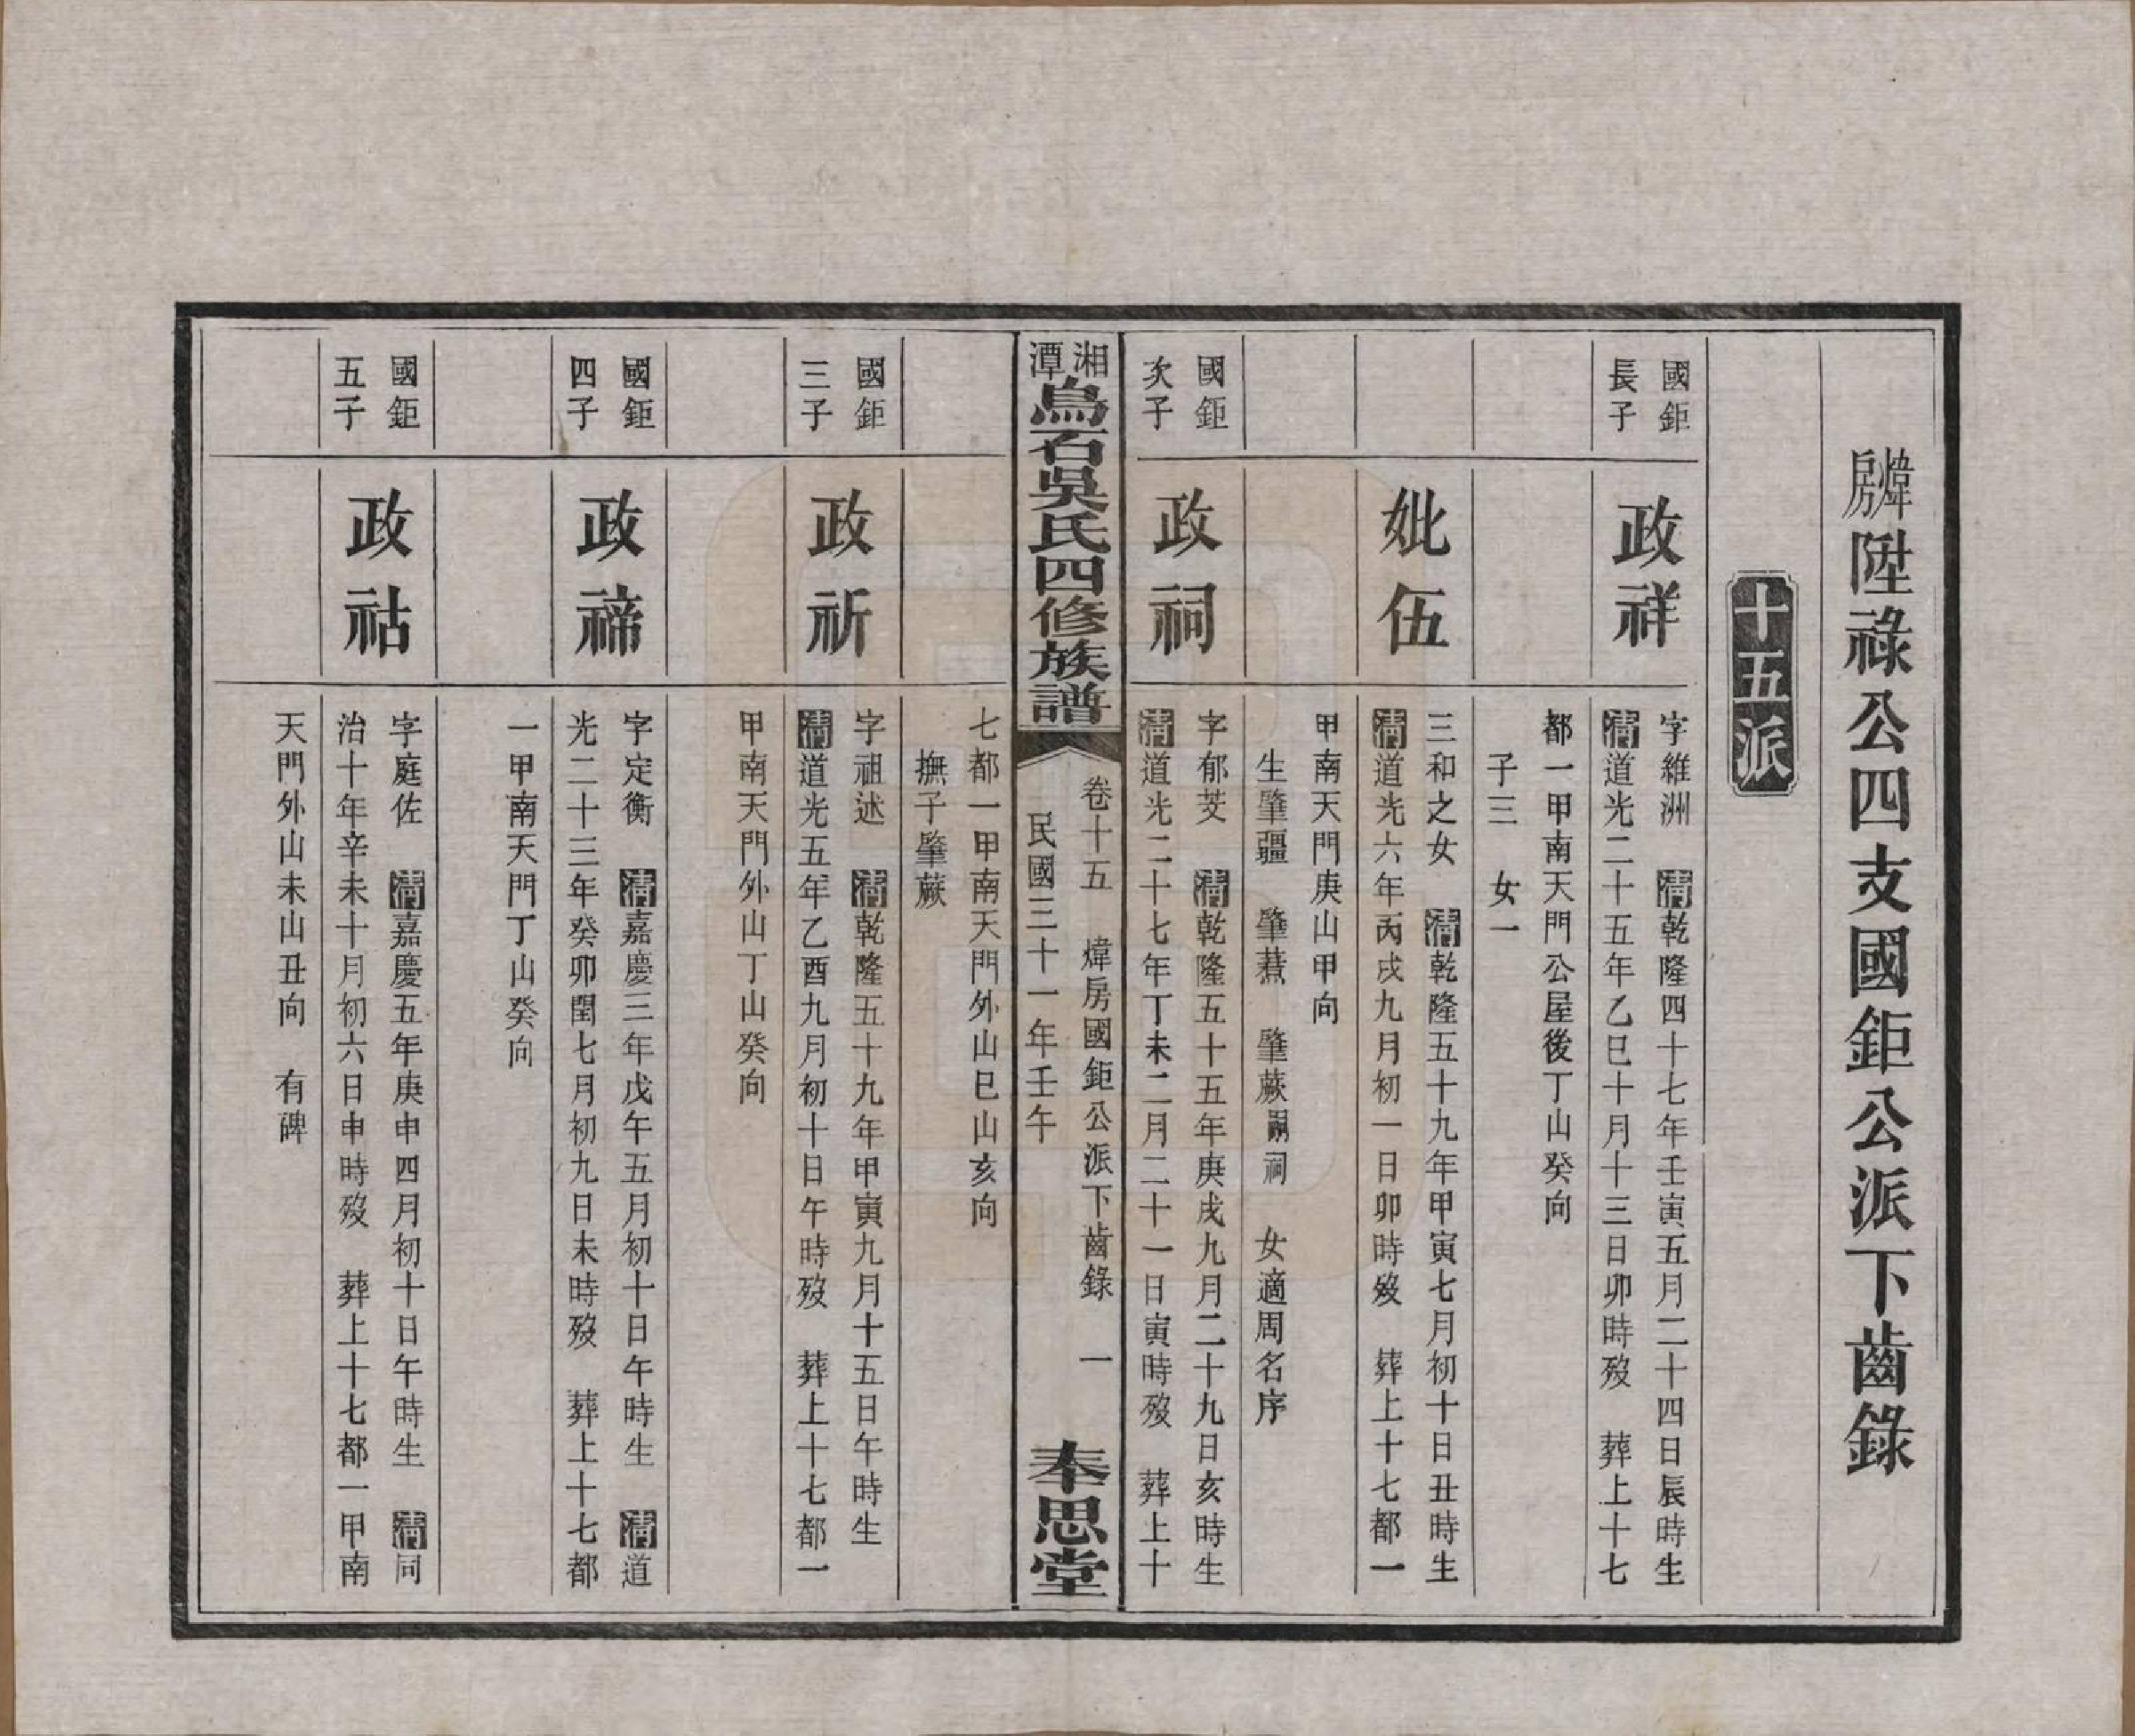 煒房陞祿公四支國鉅公派下齒錄
十五派
國鉅
長子
政祥
字維洲　清乾隆四十七年壬寅五月二十四日辰時生
清道光二十五年乙巳十月十三日卯時歿　葬上十七
都一甲南天門公屋後丁山癸向
子三　女一
妣伍
三和之女　清乾隆五十九年甲寅七月初十日丑時生
清道光六年丙戌九月初一日卯時歿　葬上十七都一
甲南天門庚山甲向
生肇疆　肇蕻　肇蕨嗣祠　女適周名序
國鉅
次子
政祠
字郁芠　清乾隆五十五年庚戌九月二十九日亥時生
清道光二十七年丁未二月二十一日寅時歿　葬上十
湘潭烏石吳氏四修族譜
卷十五　煒房國鉅公派下齒錄　一
民國三十一年壬午
奉思堂
七都一甲南天門外山巳山亥向
撫子肇蕨
國鉅
三子
政祈
字祖述　清乾隆五十九年甲寅九月十五日午時生
清道光五年乙酉九月初十日午時歿　葬上十七都一
甲南天門外山丁山癸向
國鉅
四子
政禘
字定衡　清嘉慶三年戊午五月初十日午時生　清道
光二十三年癸卯閏七月初九日未時歿　葬上十七都
一甲南天門丁山癸向
國鉅
五子
政祜
字庭佐　清嘉慶五年庚申四月初十日午時生　清同
治十年辛未十月初六日申時歿　葬上十七都一甲南
天門外山未山丑向　有碑